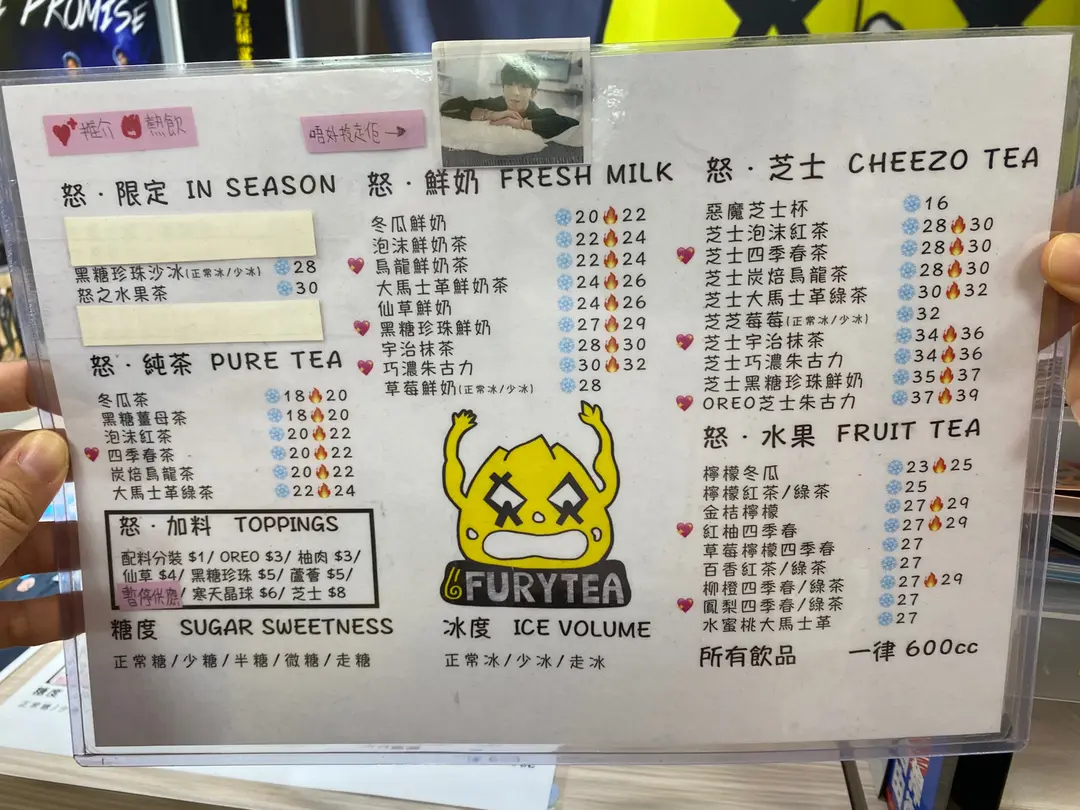 PROMISE
推介 熱飲
唔好拎走佢 →
怒・限定 IN SEASON
黑糖珍珠沙冰(正常冰/少冰) 28
怒之水果茶 30
怒・純茶 PURE TEA
冬瓜茶 18 20
黑糖薑母茶 18 20
泡沫紅茶 20 22
四季春茶 20 22
炭焙烏龍茶 20 22
大馬士革綠茶 22 24
怒・加料 TOPPINGS
配料分裝 $1/ OREO $3/ 柚肉 $3/
仙草 $4/ 黑糖珍珠 $5/ 蘆薈 $5/
暫停供應 / 寒天晶球 $6/ 芝士 $8
糖度 SUGAR SWEETNESS
正常糖/少糖/半糖/微糖/走糖
怒・鮮奶 FRESH MILK
冬瓜鮮奶 20 22
泡沫鮮奶茶 22 24
烏龍鮮奶茶 22 24
大馬士革鮮奶茶 24 26
仙草鮮奶 24 26
黑糖珍珠鮮奶 27 29
宇治抹茶 28 30
巧濃朱古力 30 32
草莓鮮奶(正常冰/少冰) 28
FURYTEA
冰度 ICE VOLUME
正常冰/少冰/走冰
怒・芝士 CHEEZO TEA
惡魔芝士杯 16
芝士泡沫紅茶 28 30
芝士四季春茶 28 30
芝士炭焙烏龍茶 28 30
芝士大馬士革綠茶 30 32
芝芝莓莓(正常冰/少冰) 32
芝士宇治抹茶 34 36
芝士巧濃朱古力 34 36
芝士黑糖珍珠鮮奶 35 37
OREO芝士朱古力 37 39
怒・水果 FRUIT TEA
檸檬冬瓜 23 25
檸檬紅茶/綠茶 25
金桔檸檬 27 29
紅柚四季春 27 29
草莓檸檬四季春 27
百香紅茶/綠茶 27
柳橙四季春/綠茶 27 29
鳳梨四季春/綠茶 27
水蜜桃大馬士革 27
所有飲品 一律 600cc
糖度